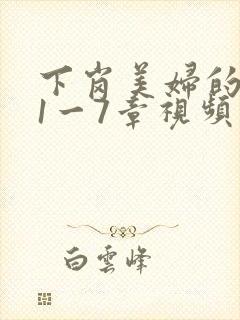 下岗美婦的
1一7章視頻
白雲峰